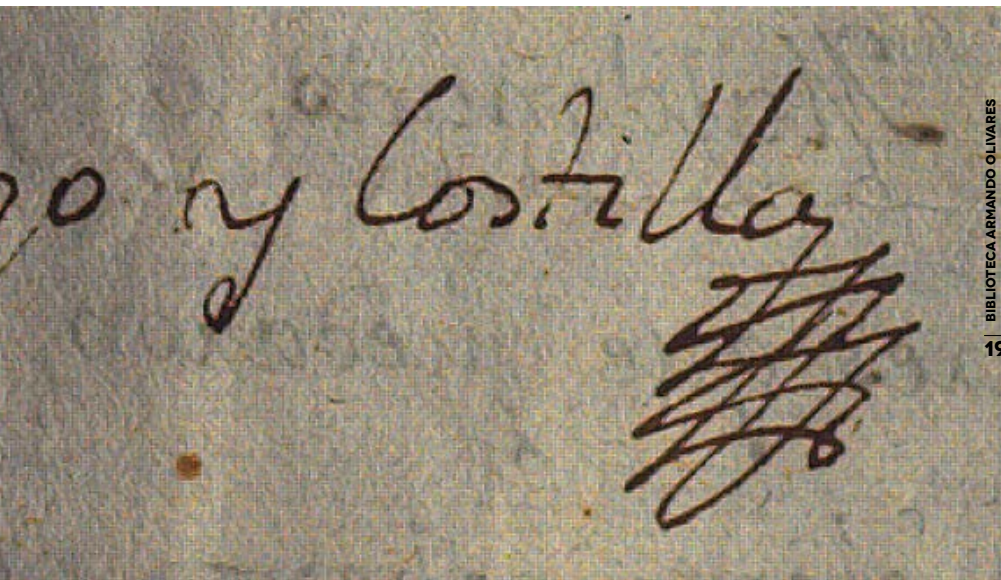 go y Costilla
BIBLIOTECA ARMANDO OLIVARES
19